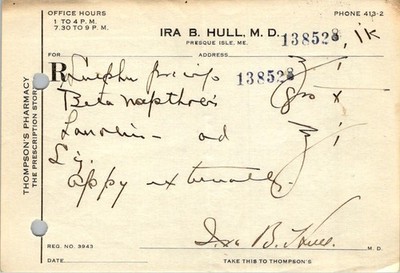 OFFICE HOURS
1 TO 4 P.M.
7.30 TO 9 P.M.
PHONE 413-2
IRA B. HULL, M. D.
PRESQUE ISLE, ME.
138528
FOR
ADDRESS
R Sulphur
138528
Beta
Lanolin - ad
appy externally.
Ira B. Hull
M. D.
REG. NO. 3943
DATE
TAKE THIS TO THOMPSON'S
THOMPSON'S PHARMACY
THE PRESCRIPTION STORE